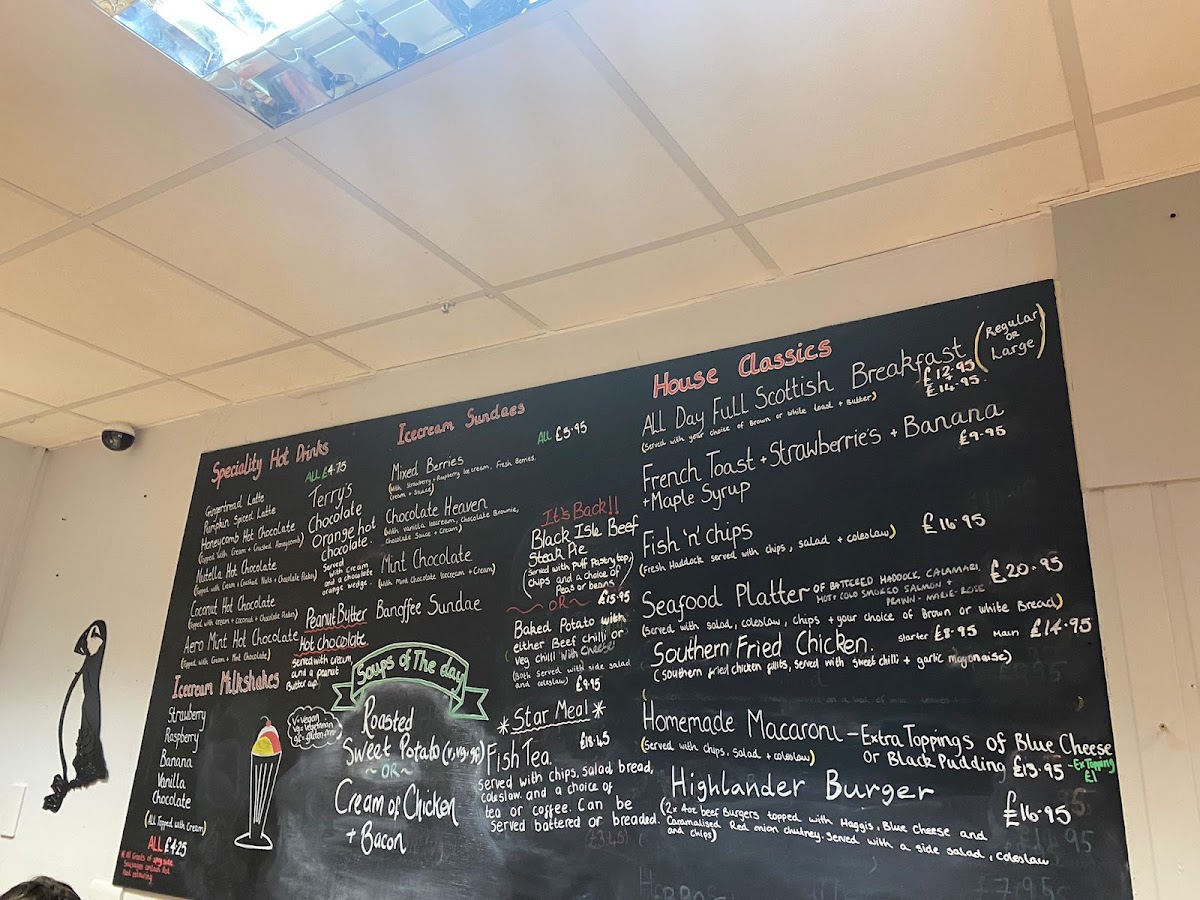 Speciality Hot Drinks
ALL £4.75
Gingerbread Latte
Pumpkin Spiced Latte
Honeycomb Hot Chocolate
(Topped with Cream + Crushed Honeycomb)
Nutella Hot Chocolate
(Topped with Cream + Crushed Nuts + Chocolate flakes)
Coconut Hot Chocolate
(Topped with cream + coconut + Chocolate flakes)
Aero Mint Hot Chocolate
(Topped with Cream + Mint Chocolate)
Terry's
Chocolate
Orange hot
chocolate.
Served
with cream
and a chocolate
orange wedge.
Peanut Butter
Hot chocolate.
served with cream
and a peanut
Butter cup.
Icecream Milkshakes
Strawberry
Raspberry
Banana
Vanilla
Chocolate
(All Topped with Cream)
ALL £4.25
Icecream Sundaes
ALL £5.95
Mixed Berries
(With Strawberry + Raspberry Icecream, Fresh Berries,
Cream + Sauce)
Chocolate Heaven
(With Vanilla Icecream, Chocolate Brownie,
Chocolate Sauce + Cream)
Mint Chocolate
(With Mint Chocolate Icecream + Cream)
Banoffee Sundae
Soups of The day
V=Vegan
vg=Vegetarian
gf=Gluten free
Roasted
Sweet Potato (v,vg,gf)
~ OR ~
Cream of Chicken
+ Bacon
It's Back!!
Black Isle Beef
Steak Pie
(served with Puff Pastry top,
chips and a choice of
Peas or beans)
~ OR ~ £15.95
Baked Potato with
either Beef chilli or
Veg chilli with cheese
(Both served with side salad
and coleslaw) £9.95
*Star Meal*
£18.45
Fish Tea.
served with chips, salad, bread,
coleslaw and a choice of
tea or coffee. Can be
served battered or breaded.
House Classics
All Day Full Scottish Breakfast (Regular
or
Large)
(Served with your choice of Brown or White toast + Butter)
£12.95
£14.95.
French Toast + Strawberrie's + Banana
+ Maple Syrup
£9.95
Fish 'n' chips £16.95
(Fresh Haddock served with chips, salad + coleslaw)
Seafood Platter OF BATTERED HADDOCK, CALAMARI,
HOT + COLD SMOKED SALMON +
PRAWN - MARIE - ROSE
£20.95
(Served with salad, coleslaw, chips + your choice of Brown or white Bread)
Southern Fried Chicken. Starter £8.95 Main £14.95
(Southern fried chicken fillets, served with sweet chilli + garlic mayonaise)
Homemade Macaroni – Extra Toppings of Blue Cheese
or Black Pudding £13.95 - Ex Topping
£1
(served with chips, salad + coleslaw)
Highlander Burger £16.95
(2x 4oz beef Burgers topped with Haggis, Blue cheese and
Caramalised Red onion chutney. Served with a side salad, coleslaw
and chips)